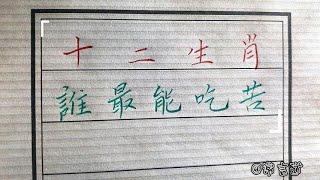 十二生肖
誰最能吃苦